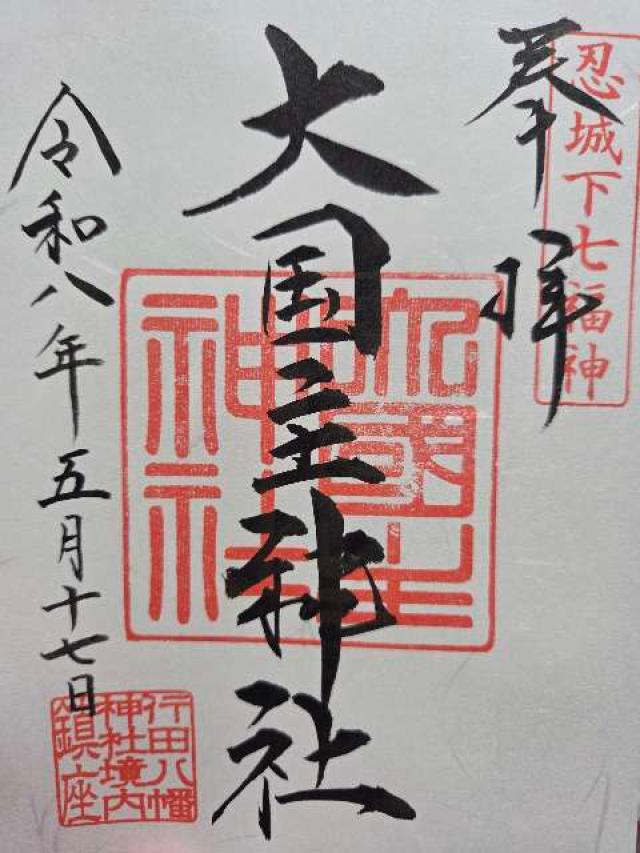 忍城下七福神
奉拝
大国主神社
大國主
神社
令和八年五月十七日
行田八幡
神社境内
鎮座